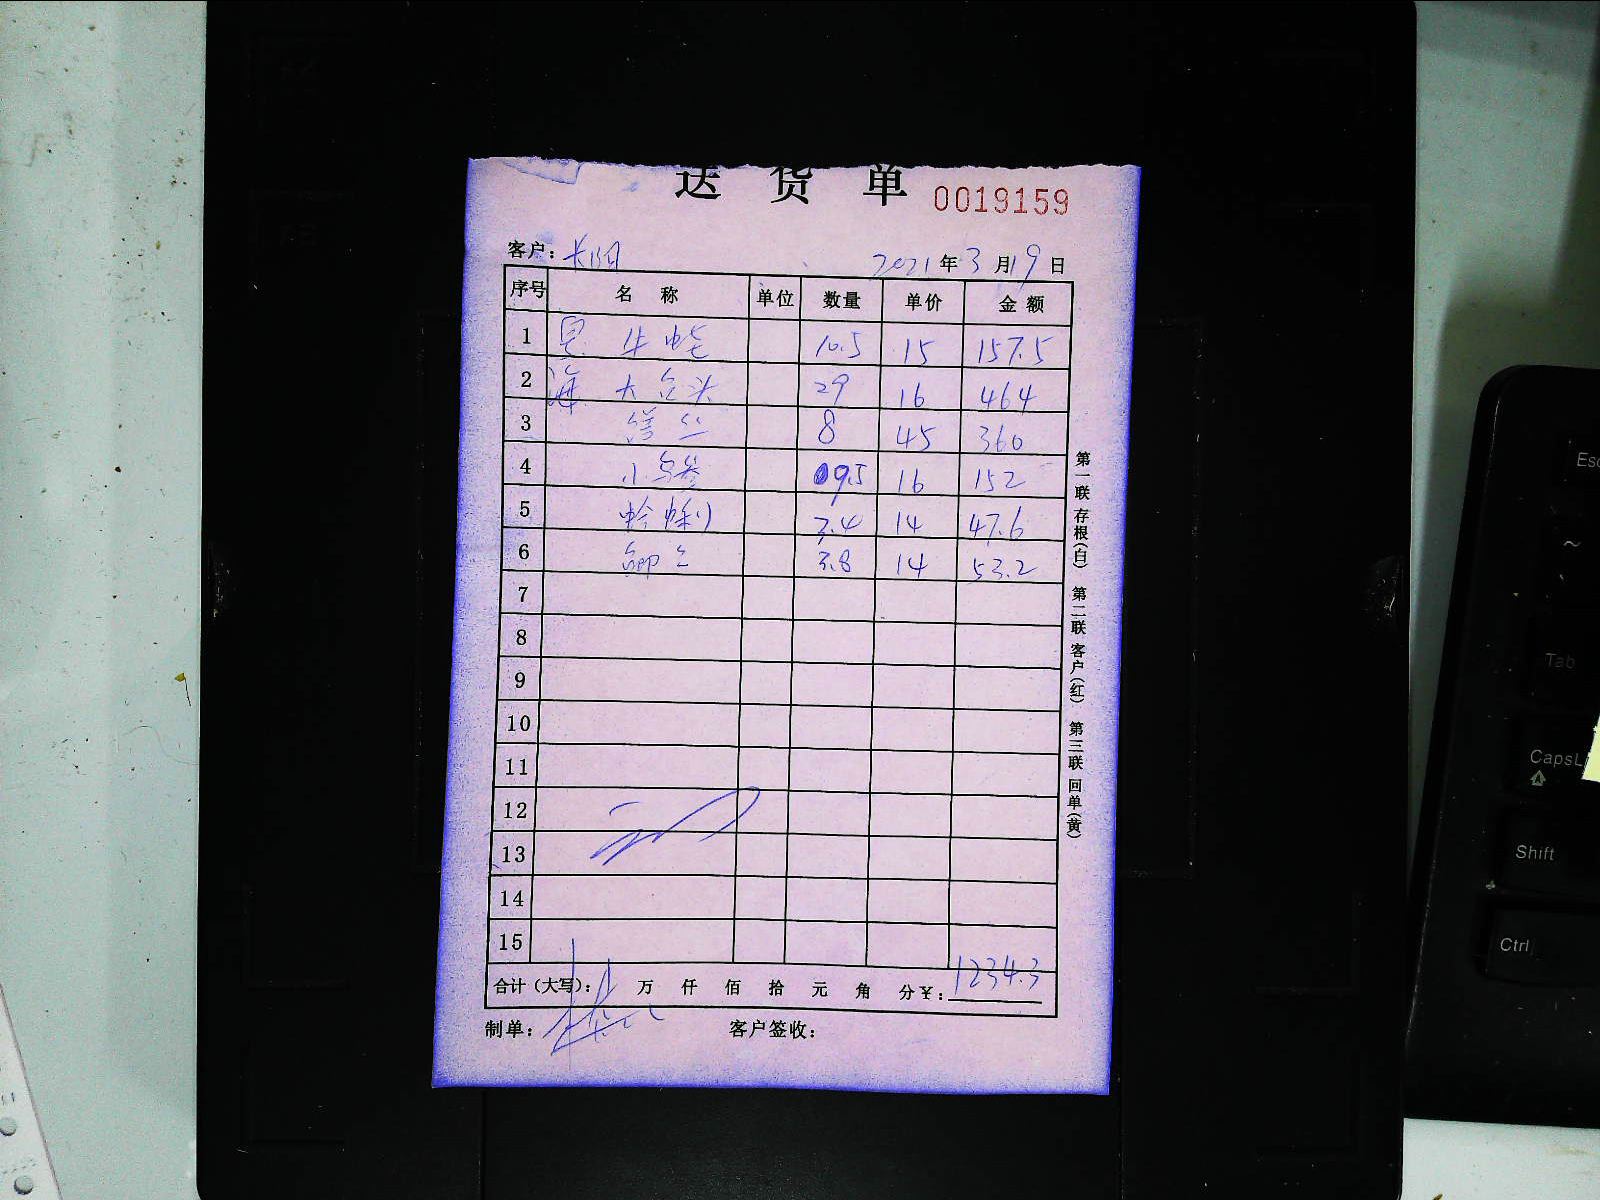 送 货 单 0019159
客户：长阳 2021年3月19日
序号 名 称 单位 数量 单价 金额
1 牛蛙 10.5 15 157.5
2 海 大包头 29 16 464
3 8 45 360
4 小乌参 9.5 16 152
5 蛤蜊 3.4 14 47.6
6 3.8 14 53.2
7
8
9
10
11
12
13
14
15
合计（大写）： 万 仟 佰 拾 元 角 分 ¥：1234.3
制单： 客户签收：
第一联 存根（白） 第二联 客户（红） 第三联 回单（黄）
Esc
~
Tab
CapsL
Shift
Ctrl